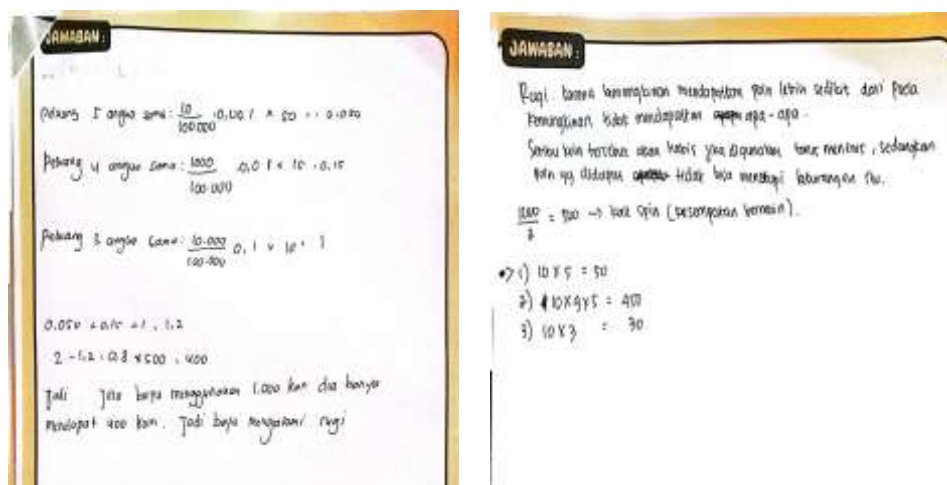 JAWABAN :
Peluang 5 angka sama : 10/100.000 = 0,001 × 50 = 0.050
Peluang 4 angka sama : 1000/100.000 0,01 × 15 = 0,15
Peluang 3 angka sama : 10.000/100.000 0,1 × 10 = 1
0.050 + 0.15 + 1 = 1.2
2 - 1.2 = 0.8 × 500 = 400
Jadi Jika bayu menggunakan 1.000 koin dia hanya
mendapat 400 koin. Jadi bayu mengalami rugi
JAWABAN :
Rugi karena kemungkinan mendapatkan poin lebih sedikit dari pada
kemungkinan tidak mendapatkan apa-apa.
Semua koin tersebut akan habis jika digunakan terus menerus, sedangkan
poin yg didapat tidak bisa menutupi kekurangan itu.
1000/2 = 500 → kali spin (kesempatan bermain).
1) 10 × 5 = 50
2) 10×9×5 = 450
3) 10 × 3 = 30